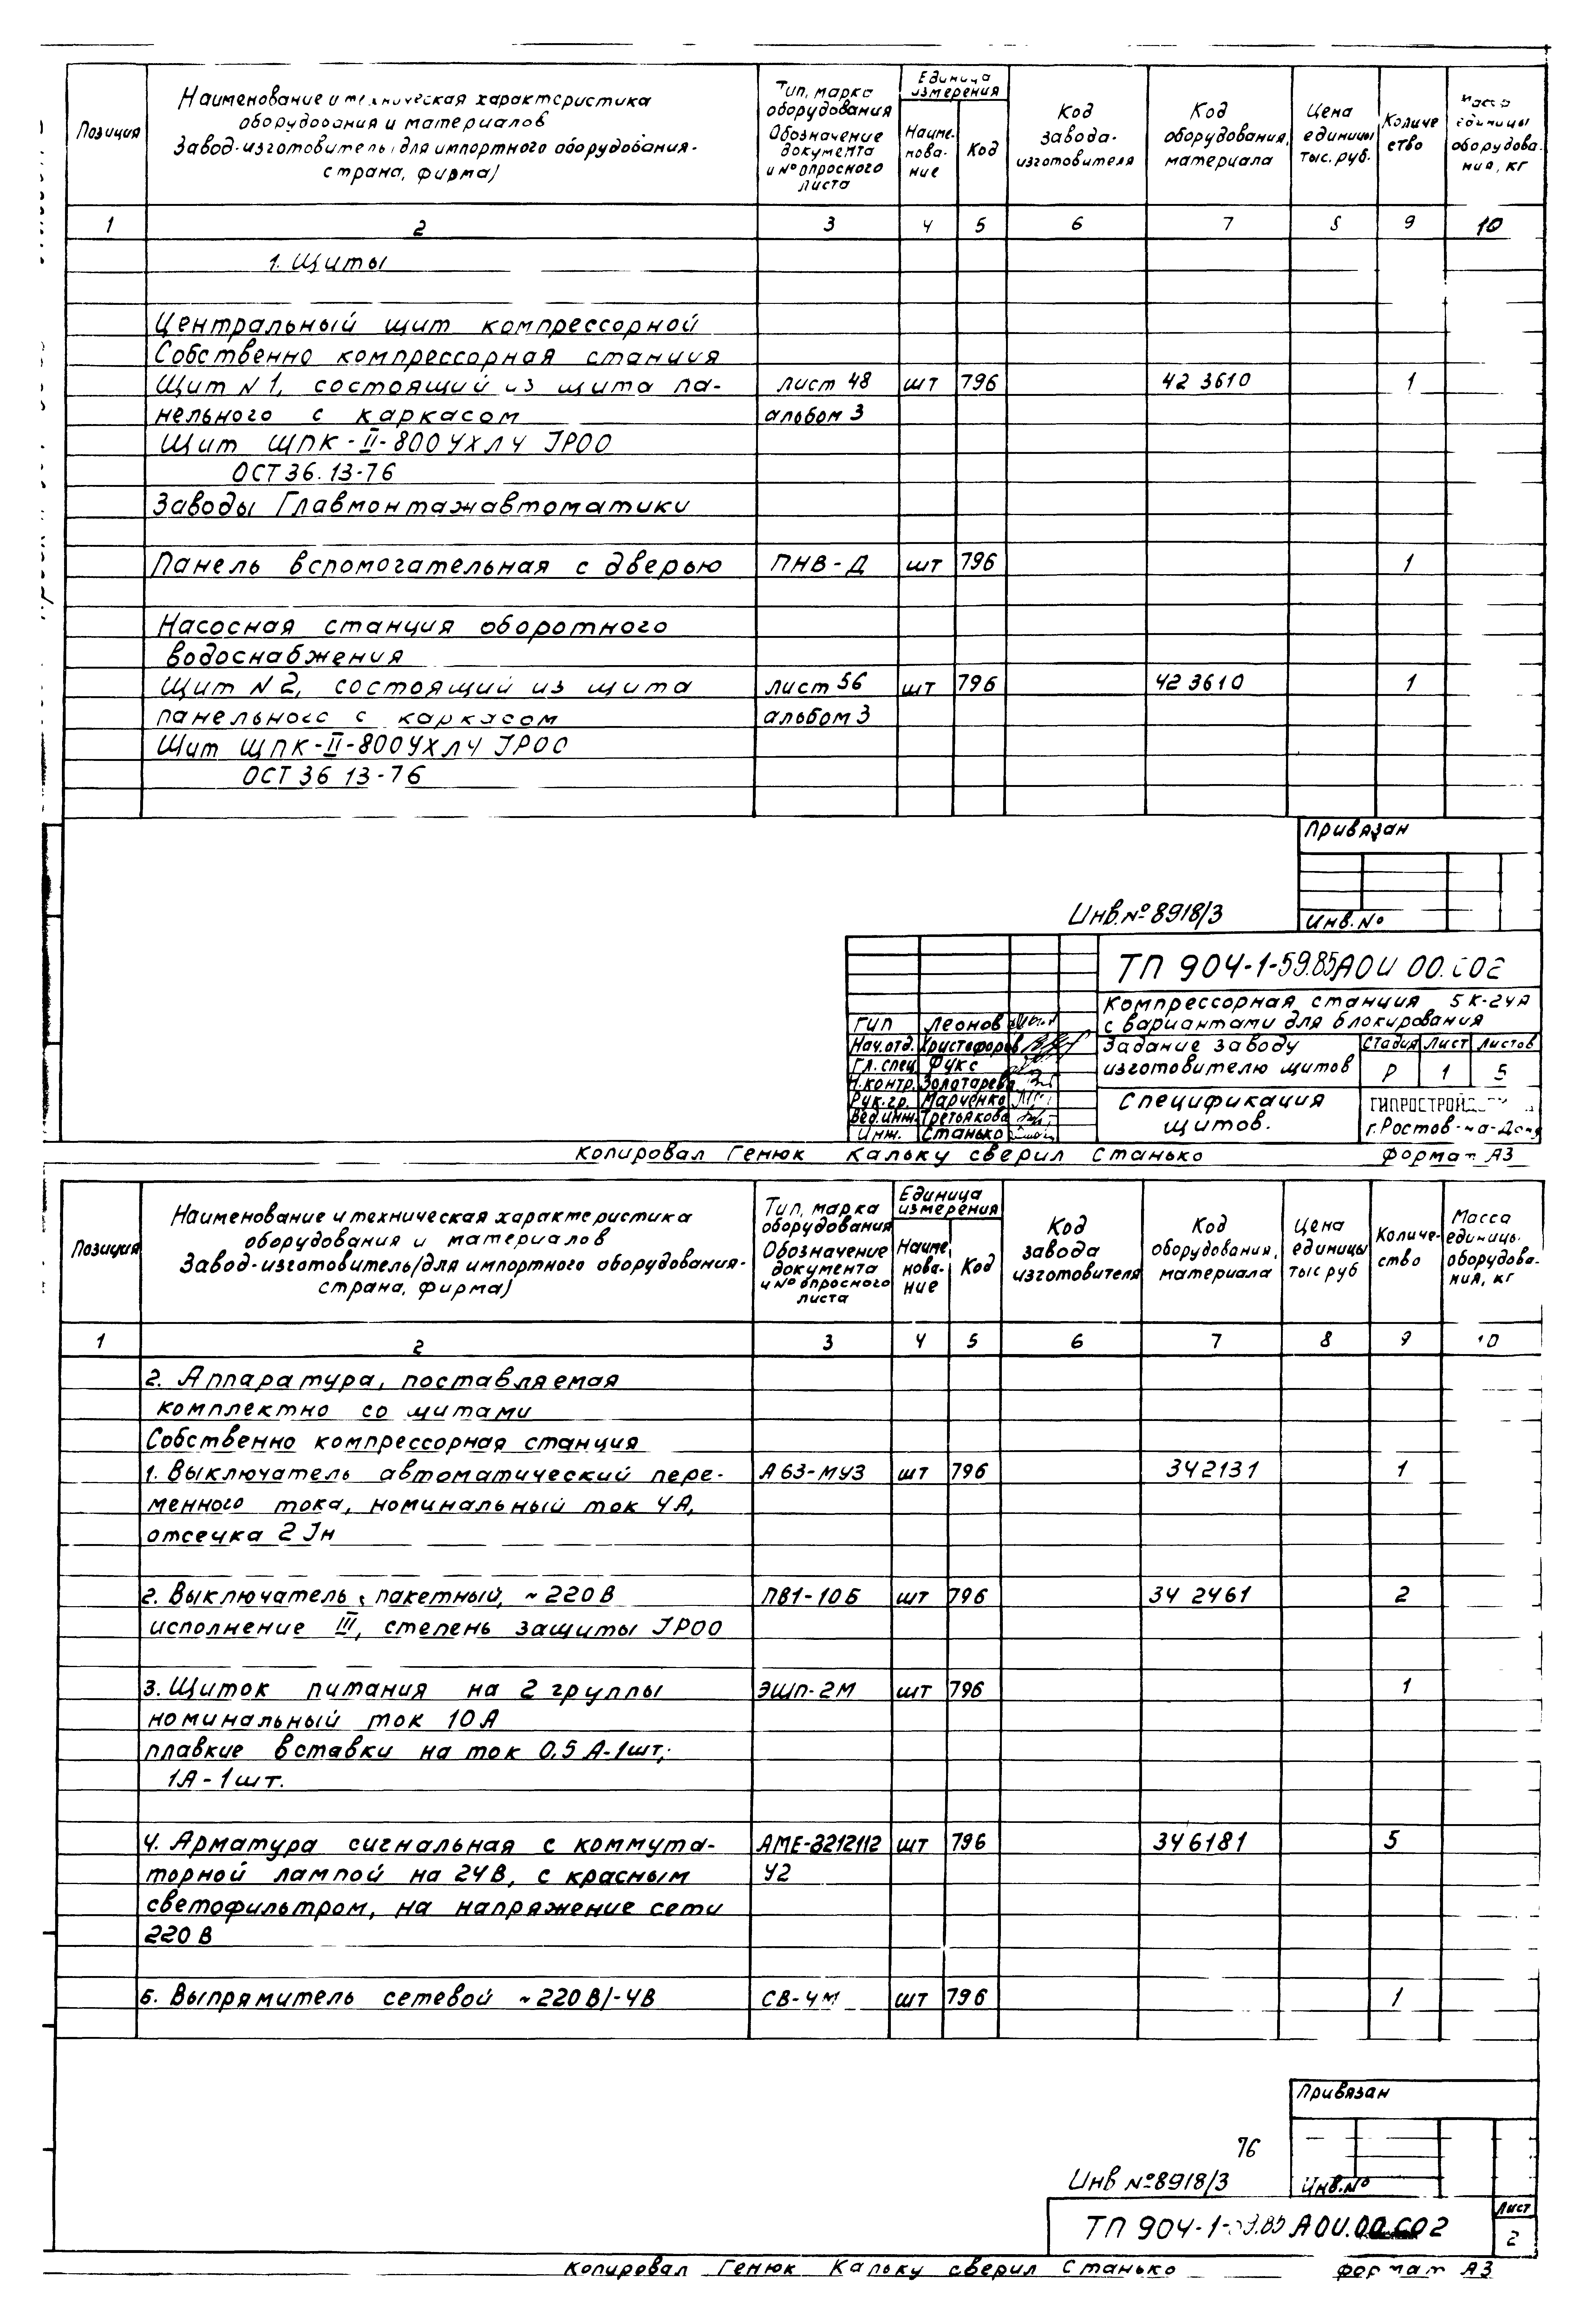 Позиция
Наименование и техническая характеристика
оборудования и материалов
Завод-изготовитель (для импортного оборудования-
страна, фирма)
Тип, марка
оборудования
Обозначение
документа
и № опросного
листа
Единица
измерения
Наиме-
нова-
ние
Код
Код
завода-
изготовителя
Код
оборудования,
материала
Цена
единицы
тыс. руб.
Количе
ство
Масса
единицы
оборудова-
ния, кг
1 2 3 4 5 6 7 8 9 10
1. Щиты
Центральный щит компрессорной
Собственно компрессорная станция
Щит №1, состоящий из щита па- лист 48 шт 796 42 3610 1
нельного с каркасом альбом 3
Щит ЩПК-II-800 УХЛ4 IP00
ОСТ 36.13-76
Заводы Главмонтажавтоматики
Панель вспомогательная с дверью ПНВ-Д шт 796 1
Насосная станция оборотного
водоснабжения
Щит №2, состоящий из щита лист 56 шт 796 42 3610 1
панельного с каркасом альбом 3
Щит ЩПК-II-800 УХЛ4 IP00
ОСТ 36 13-76
Привязан
Инв.№ 8918/3
Инв.№
ТП 904-1-59.85 АОИ 00.СО2
Компрессорная станция 5К-24А
с вариантами для блокирования
ГИП Леонов
Нач.отд. Христофоров
Гл.спец Фукс
Н.контр. Золотарева
Рук.гр. Марченко
Вед.инж. Третьякова
Инж. Станько
Задание заводу
изготовителю щитов
Стадия Лист Листов
Р 1 5
Спецификация
щитов.
ГИПРОСТРОЙ
г.Ростов-на-Дону
Копировал Генюк Кальку сверил Станько Формат А3
Позиция
Наименование и техническая характеристика
оборудования и материалов
Завод-изготовитель (для импортного оборудования-
страна, фирма)
Тип, марка
оборудования
Обозначение
документа
и № опросного
листа
Единица
измерения
Наиме
нова-
ние
Код
Код
завода
изготовителя
Код
оборудования,
материала
Цена
единицы
тыс руб
Количе-
ство
Масса
единицы
оборудова-
ния, кг
1 2 3 4 5 6 7 8 9 10
2. Аппаратура, поставляемая
комплектно со щитами
Собственно компрессорная станция
1. Выключатель автоматический пере- А63-МУ3 шт 796 342131 1
менного тока, номинальный ток 4А,
отсечка 2 Iн
2. Выключатель пакетный, ~220В ПВ1-10Б шт 796 34 2461 2
исполнение III, степень защиты IP00
3. Щиток питания на 2 группы ЭЩП-2М шт 796 1
номинальный ток 10А
плавкие вставки на ток 0,5 А-1шт,
1А-1шт.
4. Арматура сигнальная с коммута- АМЕ-3212112 шт 796 346181 5
торной лампой на 24В, с красным У2
светофильтром, на напряжение сети
220 В
5. Выпрямитель сетевой ~220В/-4В СВ-4М шт 796 1
Привязан
76
Инв №8918/3
Инв.№
ТП 904-1-59.85 АОИ.00.СО2
Лист
2
Копировал Генюк Кальку сверил Станько формат А3